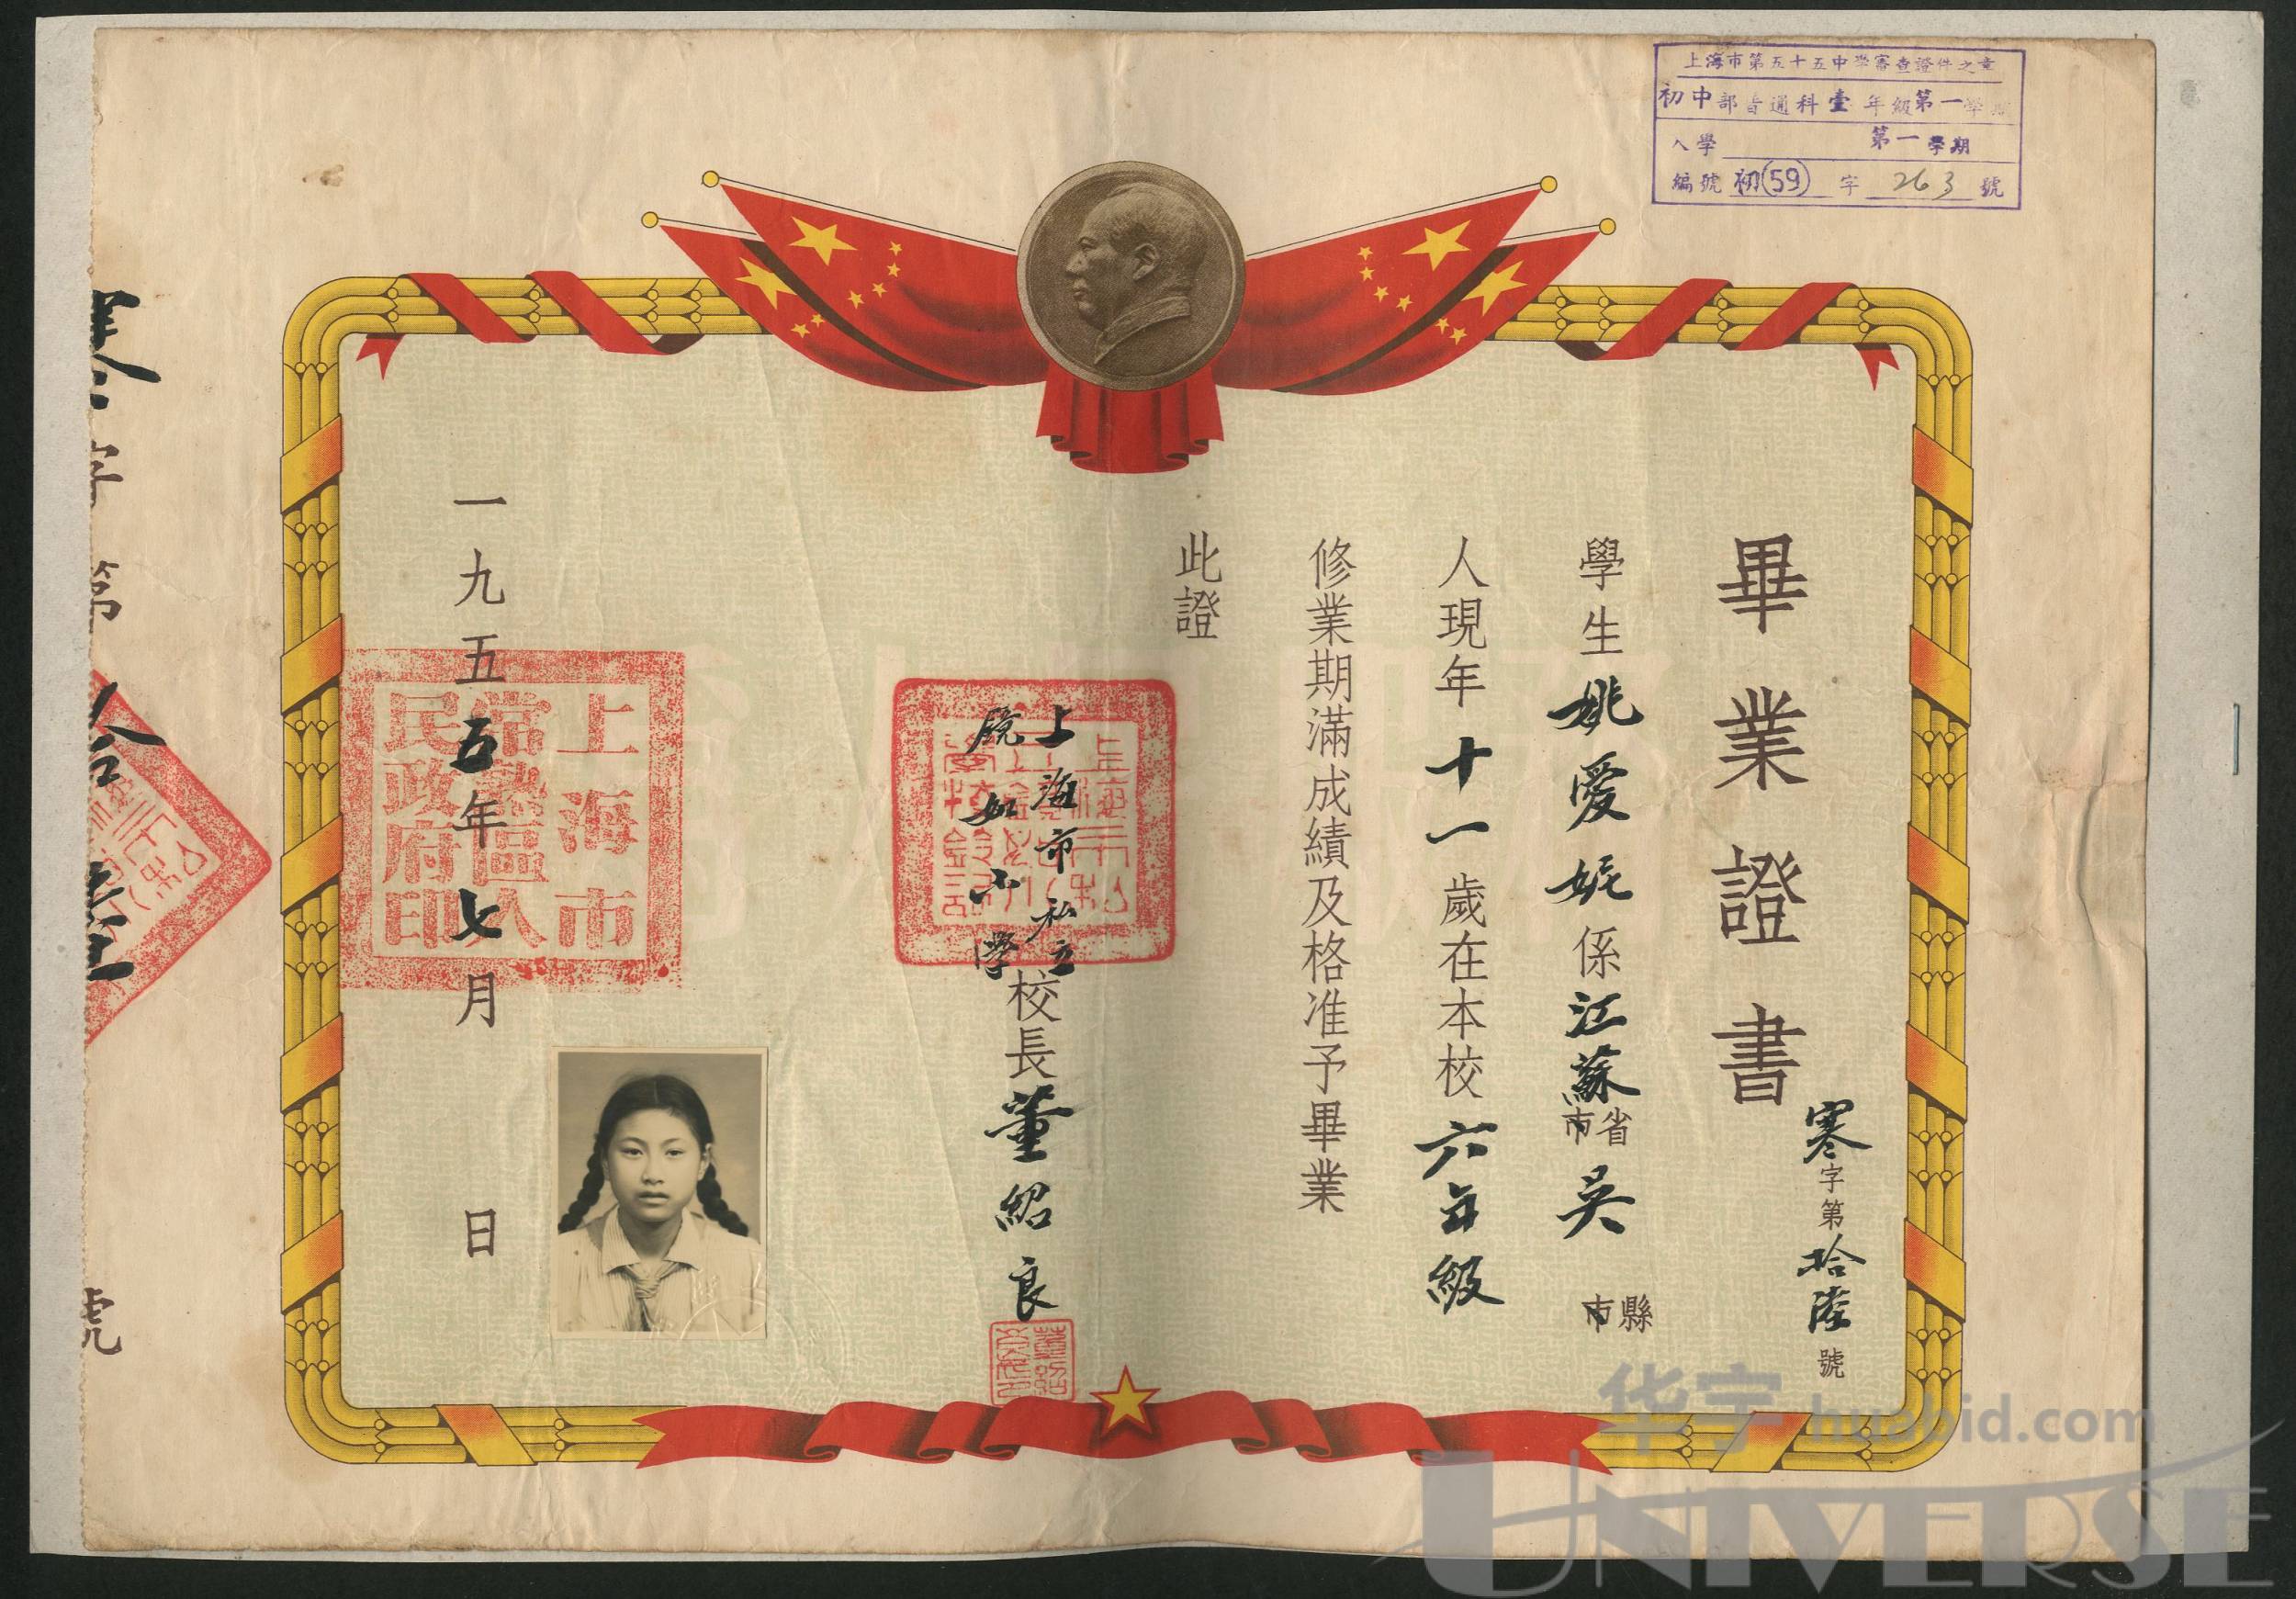 上海市第五十五中學審查證件之章
初中部普通科壹年級第一學期
入學 第一學期
編號 初(59) 字 263 號
畢業證書
寒字第拾陸號
學生姚愛妮係江蘇省市吳縣市
人現年十一歲在本校六年級
修業期滿成績及格准予畢業
此證
上海市私立
鏡如小學
校長董紹良
一九五五年七月 日
上海市
常熟區人
民政府印
字第
號
华宇 huabid.com
UNIVERSE